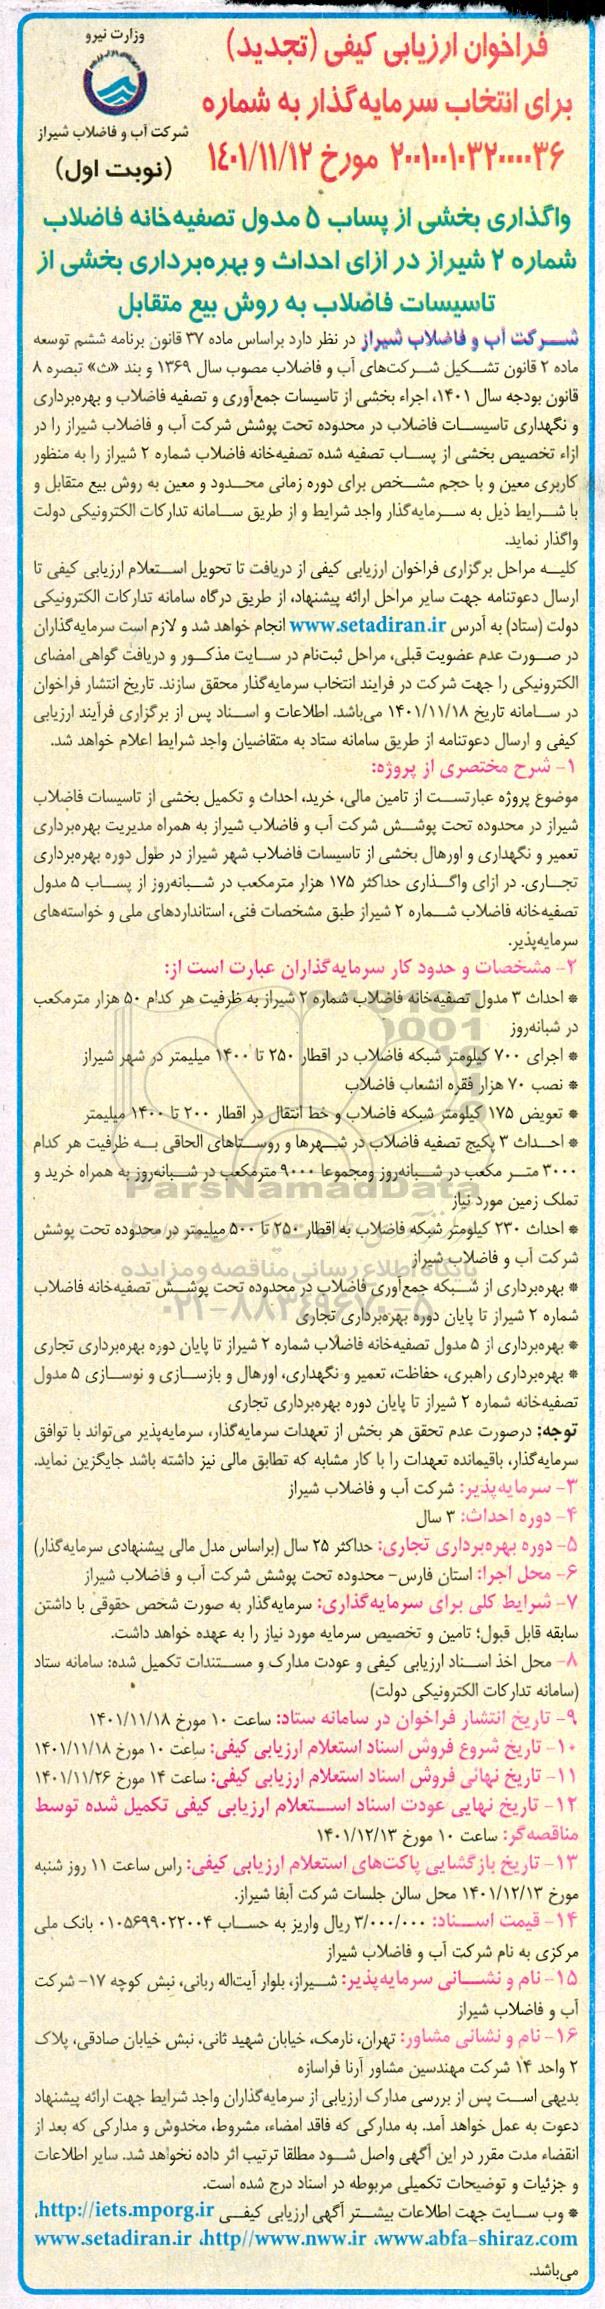 وزارت نیرو
شرکت آب و فاضلاب شیراز
(نوبت اول)
فراخوان ارزیابی کیفی (تجدید)
برای انتخاب سرمایه‌گذار به شماره
۲۰۰۱۰۰۱۰۳۲۰۰۰۰۳۶ مورخ ۱۴۰۱/۱۱/۱۲
واگذاری بخشی از پساب ۵ مدول تصفیه‌خانه فاضلاب
شماره ۲ شیراز در ازای احداث و بهره‌برداری بخشی از
تاسیسات فاضلاب به روش بیع متقابل
شرکت آب و فاضلاب شیراز در نظر دارد براساس ماده ۳۷ قانون برنامه ششم توسعه
ماده ۲ قانون تشکیل شرکت‌های آب و فاضلاب مصوب سال ۱۳۶۹ و بند «ث» تبصره ۸
قانون بودجه سال ۱۴۰۱، اجراء بخشی از تاسیسات جمع‌آوری و تصفیه فاضلاب و بهره‌برداری
و نگهداری تاسیسات فاضلاب در محدوده تحت پوشش شرکت آب و فاضلاب شیراز را در
ازاء تخصیص بخشی از پساب تصفیه شده تصفیه‌خانه فاضلاب شماره ۲ شیراز را به منظور
کاربری معین و با حجم مشخص برای دوره زمانی محدود و معین به روش بیع متقابل و
با شرایط ذیل به سرمایه‌گذار واجد شرایط و از طریق سامانه تدارکات الکترونیکی دولت
واگذار نماید.
کلیه مراحل برگزاری فراخوان ارزیابی کیفی از دریافت تا تحویل استعلام ارزیابی کیفی تا
ارسال دعوتنامه جهت سایر مراحل ارائه پیشنهاد، از طریق درگاه سامانه تدارکات الکترونیکی
دولت (ستاد) به آدرس www.setadiran.ir انجام خواهد شد و لازم است سرمایه‌گذاران
در صورت عدم عضویت قبلی، مراحل ثبت‌نام در سایت مذکور و دریافت گواهی امضای
الکترونیکی را جهت شرکت در فرایند انتخاب سرمایه‌گذار محقق سازند. تاریخ انتشار فراخوان
در سامانه تاریخ ۱۴۰۱/۱۱/۱۸ می‌باشد. اطلاعات و اسناد پس از برگزاری فرآیند ارزیابی
کیفی و ارسال دعوتنامه از طریق سامانه ستاد به متقاضیان واجد شرایط اعلام خواهد شد.
۱- شرح مختصری از پروژه:
موضوع پروژه عبارتست از تامین مالی، خرید، احداث و تکمیل بخشی از تاسیسات فاضلاب
شیراز در محدوده تحت پوشش شرکت آب و فاضلاب شیراز به همراه مدیریت بهره‌برداری
تعمیر و نگهداری و اورهال بخشی از تاسیسات فاضلاب شهر شیراز در طول دوره بهره‌برداری
تجاری. در ازای واگذاری حداکثر ۱۷۵ هزار مترمکعب در شبانه‌روز از پساب ۵ مدول
تصفیه‌خانه فاضلاب شماره ۲ شیراز طبق مشخصات فنی، استانداردهای ملی و خواسته‌های
سرمایه‌پذیر.
۲- مشخصات و حدود کار سرمایه‌گذاران عبارت است از:
* احداث ۳ مدول تصفیه‌خانه فاضلاب شماره ۲ شیراز به ظرفیت هر کدام ۵۰ هزار مترمکعب
در شبانه‌روز
* اجرای ۷۰۰ کیلومتر شبکه فاضلاب در اقطار ۲۵۰ تا ۱۴۰۰ میلیمتر در شهر شیراز
* نصب ۷۰ هزار فقره انشعاب فاضلاب
* تعویض ۱۷۵ کیلومتر شبکه فاضلاب و خط انتقال در اقطار ۲۰۰ تا ۱۴۰۰ میلیمتر
* احداث ۳ پکیج تصفیه فاضلاب در شهرها و روستاهای الحاقی به ظرفیت هر کدام
۳۰۰۰ متر مکعب در شبانه‌روز ومجموعا ۹۰۰۰ مترمکعب در شبانه‌روز به همراه خرید و
تملک زمین مورد نیاز
ParsNamadData
* احداث ۲۳۰ کیلومتر شبکه فاضلاب به اقطار ۲۵۰ تا ۵۰۰ میلیمتر در محدوده تحت پوشش
شرکت آب و فاضلاب شیراز
پایگاه اطلاع رسانی مناقصه و مزایده
* بهره‌برداری از شبکه جمع‌آوری فاضلاب در محدوده تحت پوشش تصفیه‌خانه فاضلاب
شماره ۲ شیراز تا پایان دوره بهره‌برداری تجاری
۰۲۱-۸۸۳۴۹۶۷۰-۵
* بهره‌برداری از ۵ مدول تصفیه‌خانه فاضلاب شماره ۲ شیراز تا پایان دوره بهره‌برداری تجاری
* بهره‌برداری راهبری، حفاظت، تعمیر و نگهداری، اورهال و بازسازی و نوسازی ۵ مدول
تصفیه‌خانه شماره ۲ شیراز تا پایان دوره بهره‌برداری تجاری
توجه: درصورت عدم تحقق هر بخش از تعهدات سرمایه‌گذار، سرمایه‌پذیر می‌تواند با توافق
سرمایه‌گذار، باقیمانده تعهدات را با کار مشابه که تطابق مالی نیز داشته باشد جایگزین نماید.
۳- سرمایه‌پذیر: شرکت آب و فاضلاب شیراز
۴- دوره احداث: ۳ سال
۵- دوره بهره‌برداری تجاری: حداکثر ۲۵ سال (براساس مدل مالی پیشنهادی سرمایه‌گذار)
۶- محل اجرا: استان فارس- محدوده تحت پوشش شرکت آب و فاضلاب شیراز
۷- شرایط کلی برای سرمایه‌گذاری: سرمایه‌گذار به صورت شخص حقوقی با داشتن
سابقه قابل قبول؛ تامین و تخصیص سرمایه مورد نیاز را به عهده خواهد داشت.
۸- محل اخذ اسناد ارزیابی کیفی و عودت مدارک و مستندات تکمیل شده: سامانه ستاد
(سامانه تدارکات الکترونیکی دولت)
۹- تاریخ انتشار فراخوان در سامانه ستاد: ساعت ۱۰ مورخ ۱۴۰۱/۱۱/۱۸
۱۰- تاریخ شروع فروش اسناد استعلام ارزیابی کیفی: ساعت ۱۰ مورخ ۱۴۰۱/۱۱/۱۸
۱۱- تاریخ نهائی فروش اسناد استعلام ارزیابی کیفی: ساعت ۱۴ مورخ ۱۴۰۱/۱۱/۲۶
۱۲- تاریخ نهایی عودت اسناد استعلام ارزیابی کیفی تکمیل شده توسط
مناقصه‌گر: ساعت ۱۰ مورخ ۱۴۰۱/۱۲/۱۳
۱۳- تاریخ بازگشایی پاکت‌های استعلام ارزیابی کیفی: راس ساعت ۱۱ روز شنبه
مورخ ۱۴۰۱/۱۲/۱۳ محل سالن جلسات شرکت آبفا شیراز.
۱۴- قیمت اسناد: ۳/۰۰۰/۰۰۰ ریال واریز به حساب ۰۱۰۵۶۹۹۰۲۲۰۰۴ بانک ملی
مرکزی به نام شرکت آب و فاضلاب شیراز
۱۵- نام و نشانی سرمایه‌پذیر: شیراز، بلوار آیت‌اله ربانی، نبش کوچه ۱۷- شرکت
آب و فاضلاب شیراز
۱۶- نام و نشانی مشاور: تهران، نارمک، خیابان شهید ثانی، نبش خیابان صادقی، پلاک
۲ واحد ۱۴ شرکت مهندسین مشاور آرنا فراسازه
بدیهی است پس از بررسی مدارک ارزیابی از سرمایه‌گذاران واجد شرایط جهت ارائه پیشنهاد
دعوت به عمل خواهد آمد. به مدارکی که فاقد امضاء، مشروط، مخدوش و مدارکی که بعد از
انقضاء مدت مقرر در این آگهی واصل شود مطلقا ترتیب اثر داده نخواهد شد. سایر اطلاعات
و جزئیات و توضیحات تکمیلی مربوطه در اسناد درج شده است.
* وب سایت جهت اطلاعات بیشتر آگهی ارزیابی کیفی http://iets.mporg.ir،
www.setadiran.ir ،http//www.nww.ir ،www.abfa-shiraz.com
می‌باشد.